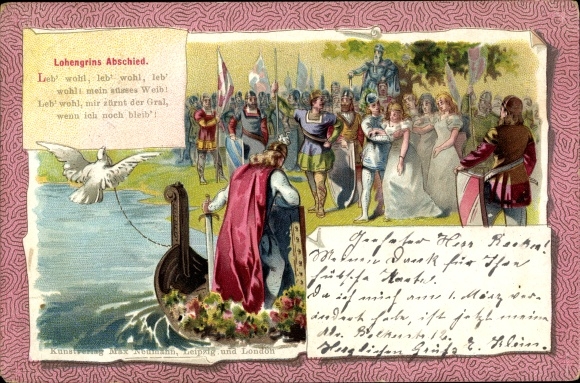 Lohengrins Abschied.
Leb' wohl, leb' wohl, leb'
wohl! mein süsses Weib!
Leb' wohl, mir zürnt der Gral,
wenn ich noch bleib'!
Geehrter Herr
Meinen Dank für Ihre
hübsche Karte.
Da ich mich am 1. März ver-
ändert habe, ist jetzt meine
Herzlichen Gruß E. Klein.
Kunstverlag Max Neumann, Leipzig und London